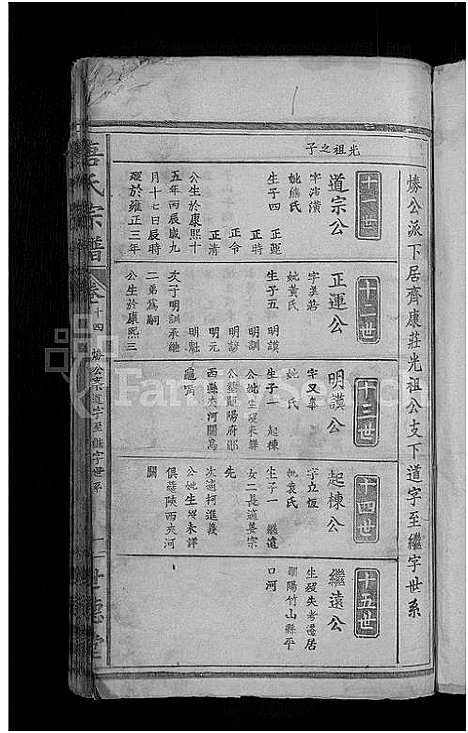 燦公派下居齊康莊光祖公支下道字至繼字世系
光祖之子
十一世
道宗公
字沛濱
妣熊氏
生子四 正運
正時
正令
正清
公生於康熙十
五年丙辰歲九
月十七日辰時
歿於雍正三年
十二世
正運公
妣黃氏
生子五 明謨
明訪
明訓
明元
明魁
次子明訓承繼
二弟為嗣
公生於康熙三
十三世
明謨公
字又皐
妣 氏
生子一 起棟
公妣生歿未詳
公葬鄖陽府鄖
西縣夾河關烏
龜嘴
十四世
起棟公
字立恆
妣袁氏
生子一 繼遠
女二長適姜宗
先
次適柯進義
公妣生歿未詳
俱葬陝西夾河
關
十五世
繼遠公
生歿失考遷居
鄖陽竹山縣平
口河
氏宗譜
卷十四
燦公派道字至繼字世系
FamilySearch